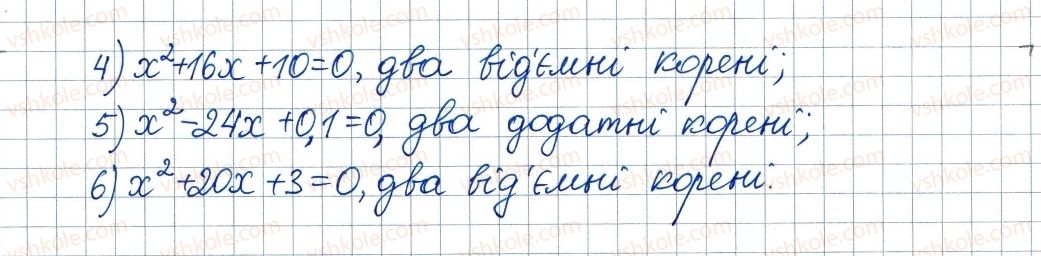 4) x²+16x+10=0, два від'ємні корені;
5) x²-24x+0,1=0, два додатні корені;
6) x²+20x+3=0, два від'ємні корені.